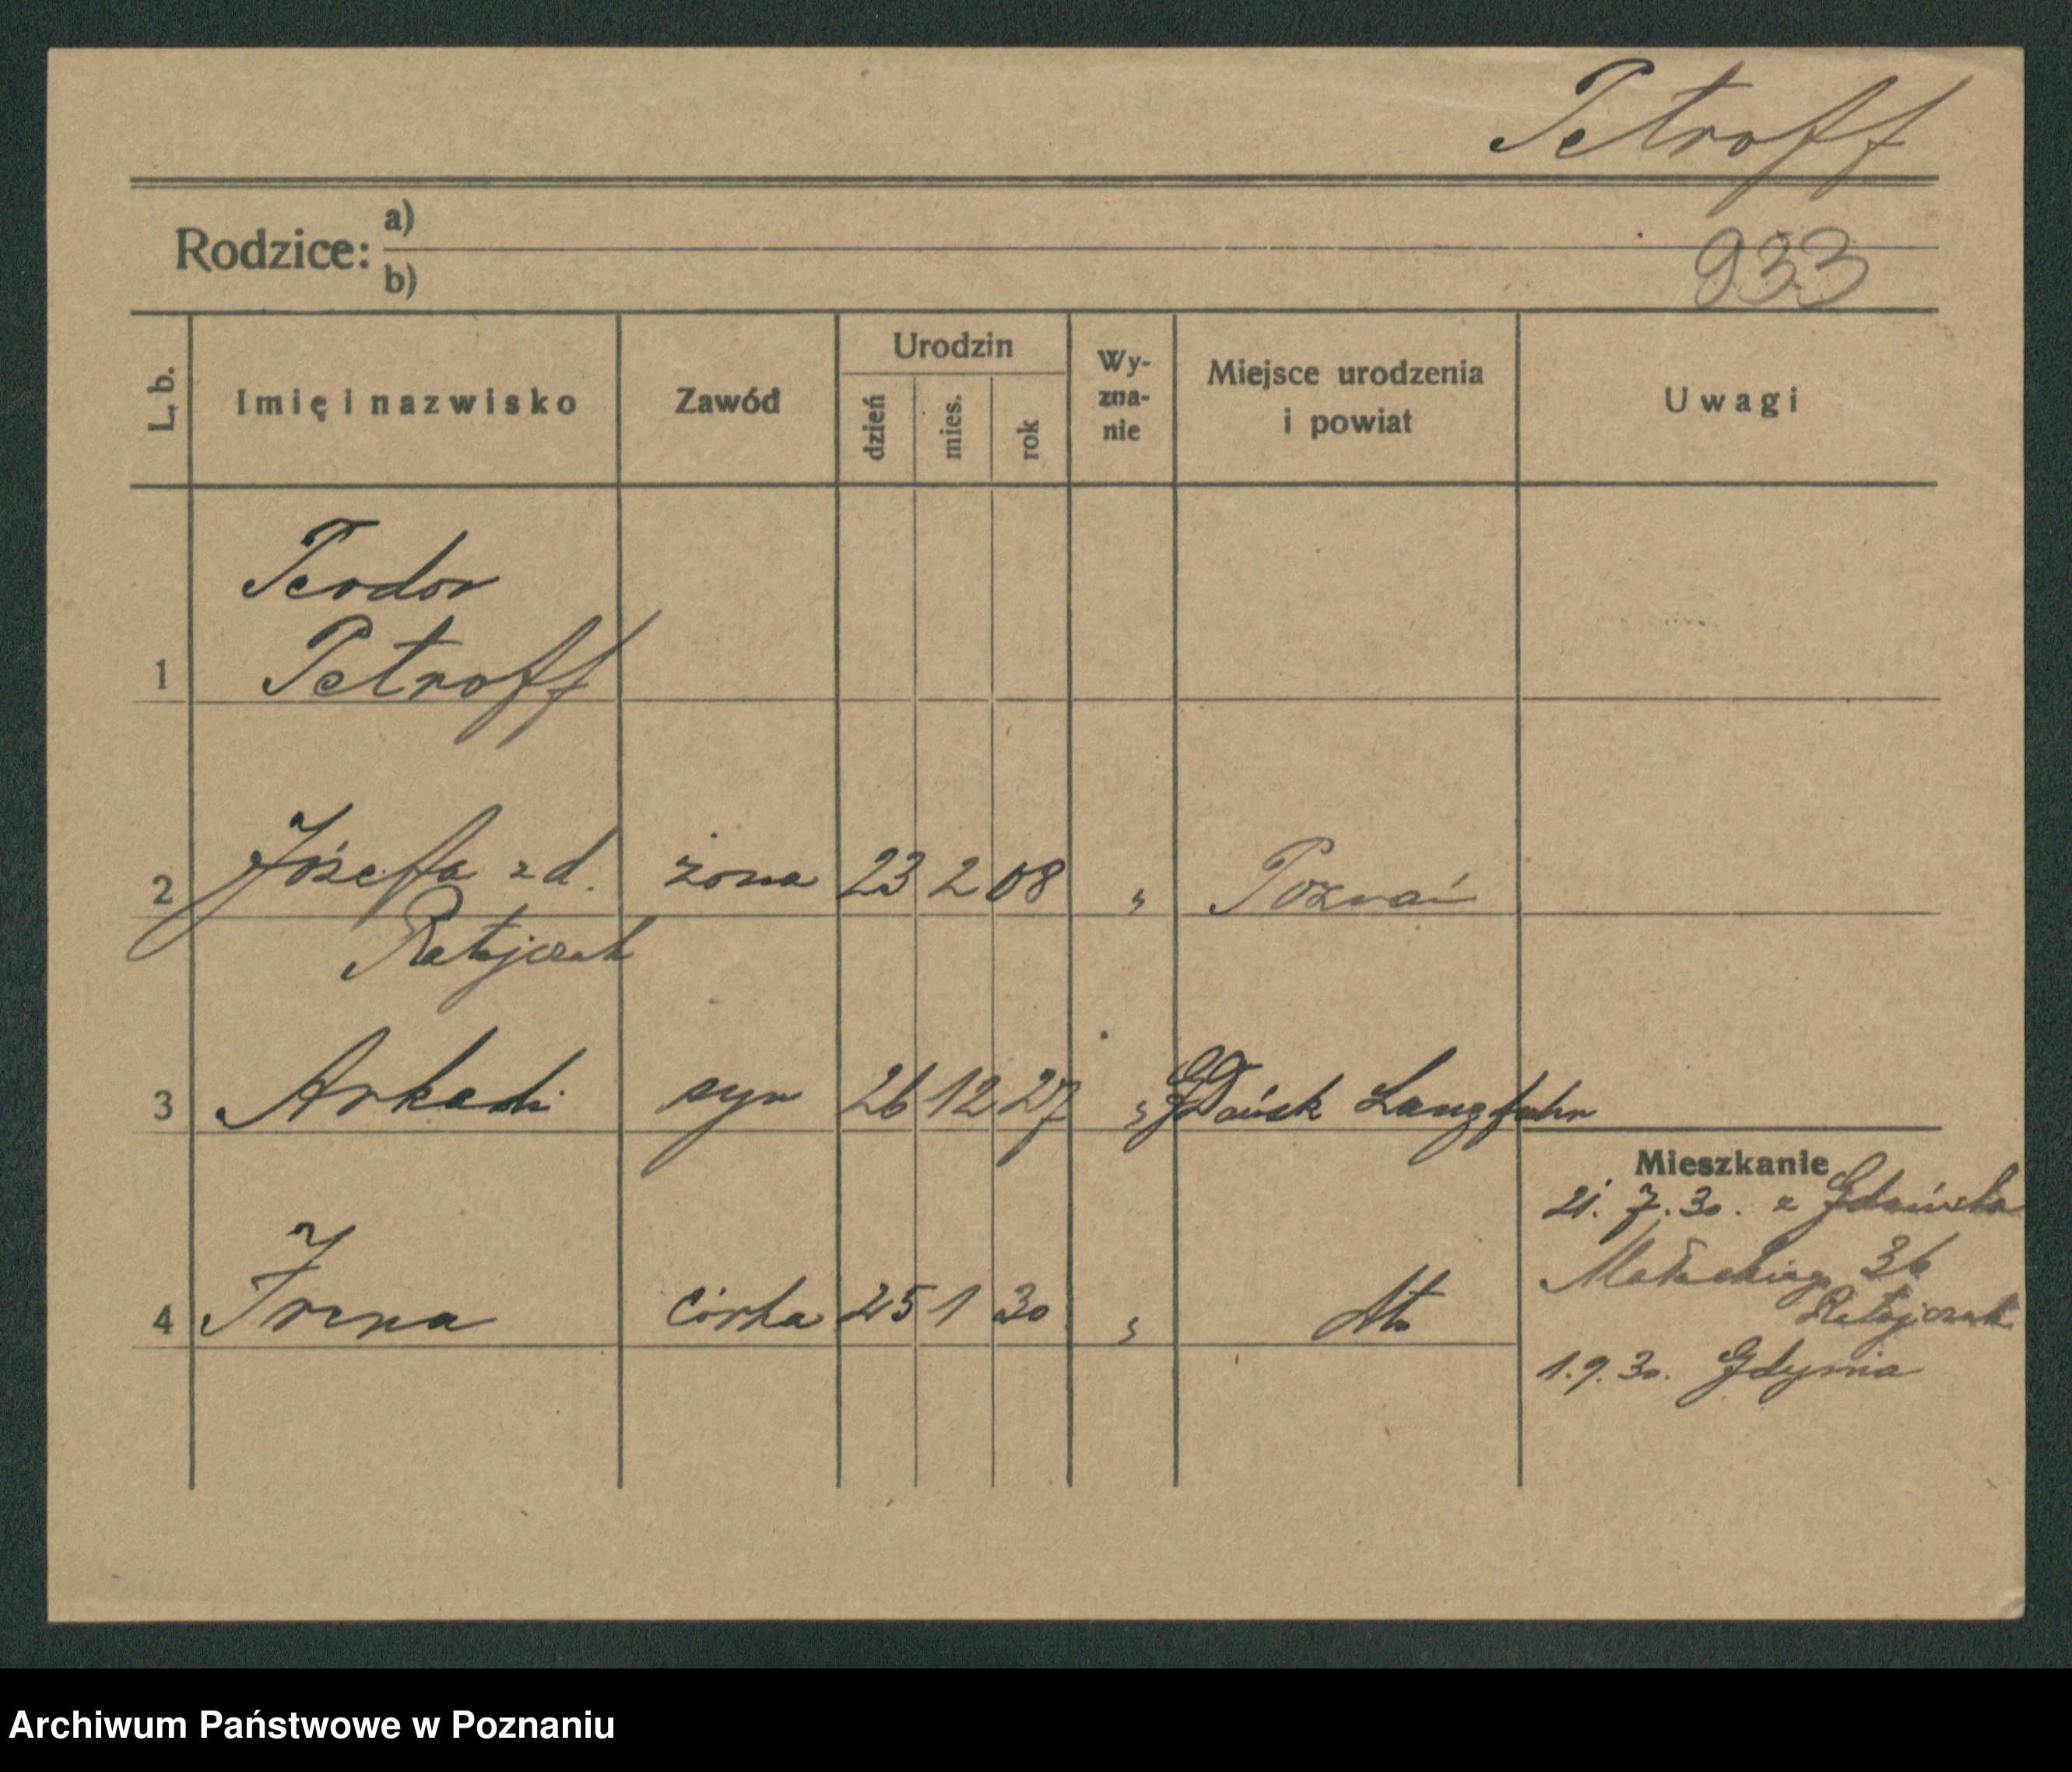 Petroff
Rodzice: a)
b)
933
L. b. Imię i nazwisko Zawód Urodzin dzień mies. rok Wy-zna-nie Miejsce urodzenia i powiat Uwagi
Teodor
1 Petroff
2 Józeffa z d. żona 23 2 08 " Poznań
Ratajczak
3 Arkadi syn 26 12 27 " Gdańsk Langfuhr
Mieszkanie
21. 7. 30. z Gdańska
36
4 Irena córka 25 1 30 " dto
Ratajczak
1. 9. 30. Gdynia
Archiwum Państwowe w Poznaniu